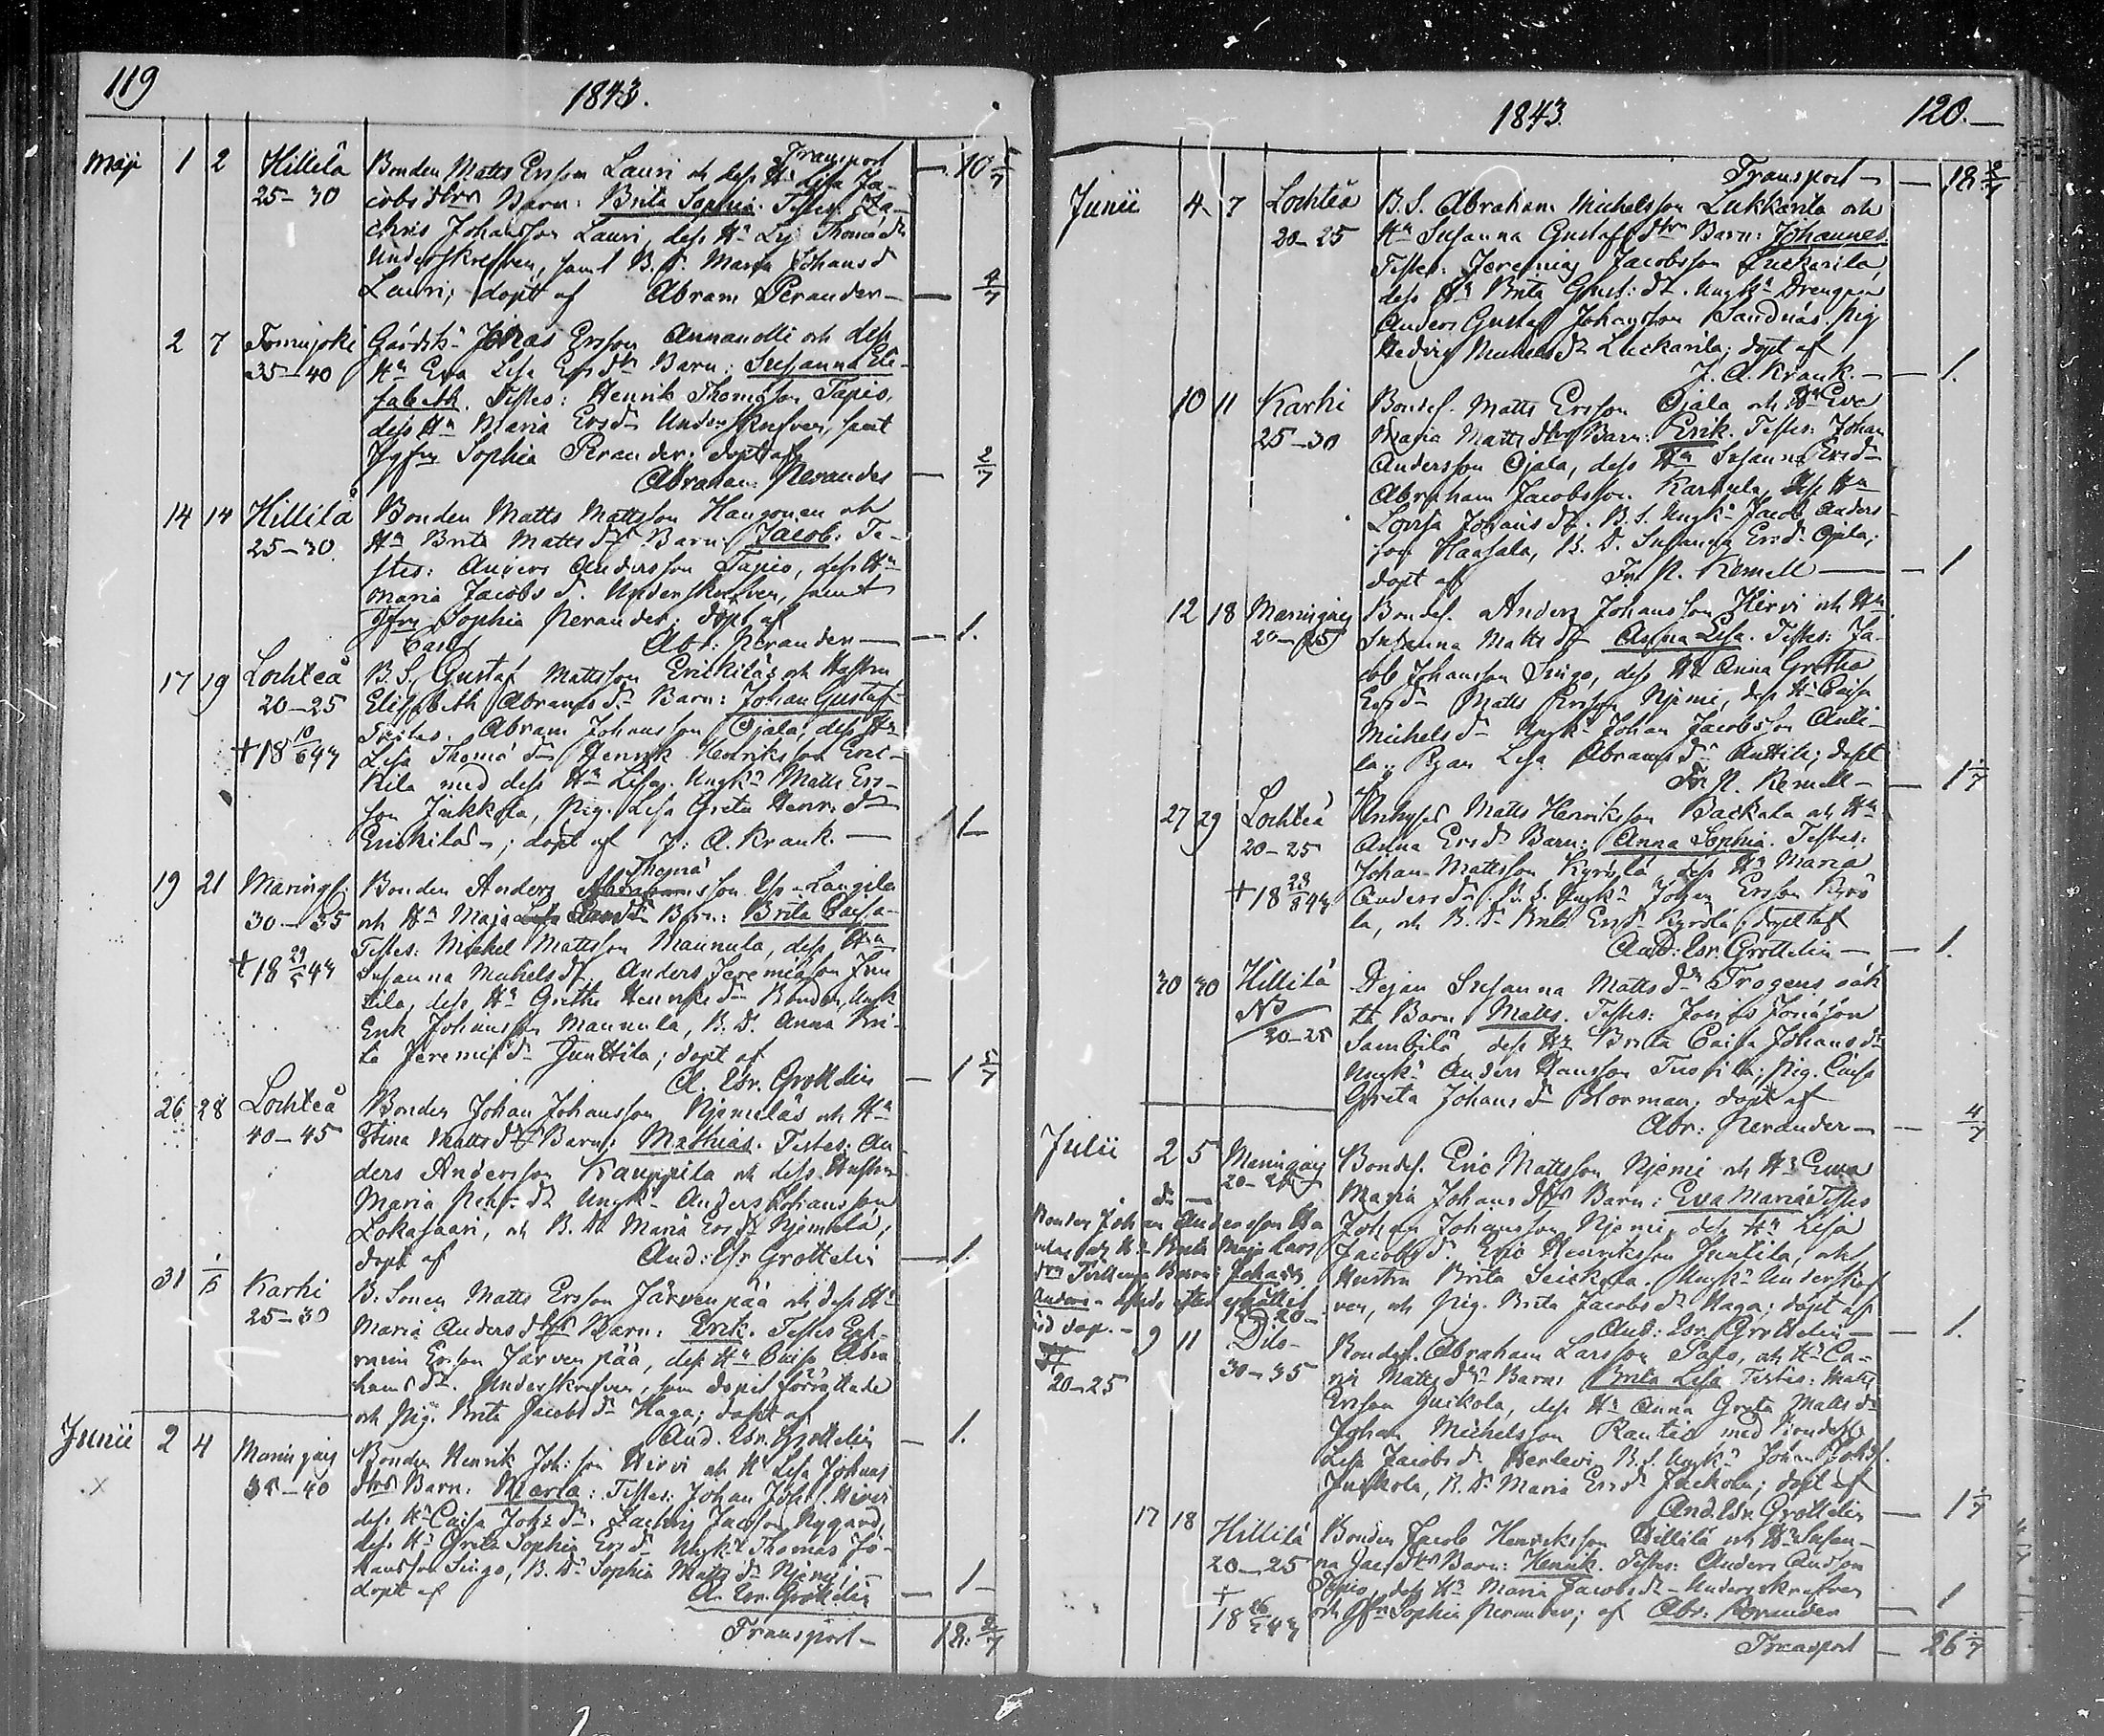 119
1843.
Transport — 10
Maji 1 2 Hillilä Bonden Matts Ersson Lauri och dess Hu Lisa Ja-
25–30 cobsdtrs Barn: Brita Sophia. Testes: Za-
chris Johansson Lauri, dess Hu Thomædr
Underskrefven, samt B. D. Maria Johansd
Lauri; döpt af Abram Perander — 4/7
2 7 Jonas Ersson Annanolli och dess
35–40 Hu Eva Lisa Ersdtr Barn: Susanna Eli-
sabeth. Testes: Henrik Thomasson Tapio,
dess Hu Maria Ersdr Underskrefven, samt
Sophia Perander; döpt af
Abraham Perander — 2/7
14 14 Hillilä Bonden Matts Mattsson Haugonen och
25–30 Hu Brita Mattsdtr Barn: Jacob. Te-
stes: Anders Andersson Tapio, dess Hu
Maria Jacobsd. Underskrefven, samt
Sophia Perander; döpt af
Abr: Perander — 1.
17 19 Lochteå B. S. Gustaf Mattsson Erickilas och Hustru
20–25 Elisabeth Abramsdr Barn: Johan Gustaf.
Testes. Abram Johansson Ojala, dess Hu
+ 18 10/6 43 Lisa Thomædr Henrik Henriksson Eric-
kila med dess Hu Ungk: Matts Ers-
son Jukkola, Pig. Lisa Greta Henr. dr
Erickilas; döpt af J. A. Krank. — 1
19 21 Maringj. Bonden Anders Thomæ son Langila
30–35 och Hu Maja Barn: Brita Caisa
Testes: Michel Mattsson Mannula, dess Hu
+ 18 29/5 43 Susanna Michelsdr. Anders Jeremiasson Jun-
tila, dess Hu Grethe Henriksdr Bonden, Ungk
Erik Johansson Mannula, B. D. Anna Bri-
ta Jeremiædr Junttila; döpt af
A. Esr. Grottelin — 1 5/7
26 28 Lochteå Bonden Johan Johansson Njemeläs och Hu
40–45 Stina Mattsdtr Barn: Mathias. Testes: An-
ders Andersson Kauppila och dess Hustru
Maria Ungk: Anders Johansson
Lokasaari, och B. Dr Maria Ersdr Njemelä;
döpt af And: Esr Grottelin — 1.
31 Karhi B. Sonen Matts Ersson Järvenpää och dess Hu
25–30 Maria Andersdtrs Barn: Erik. Testes Eph-
raim Ersson Järvenpää, dess Hu Caisa Abra
hamsdr. Underskrefven, som dopet förrättade
och Pig. Brita Jacobsdr Haga; döpt af
And. Esr. Grottelin — 1.
Junii 2 4 Maringais Bonden Henrik Joh: son Hirvi och Hu Lisa Johans
35–40 dtrs Barn: Maria: Testes: Johan Johs. Hirvi
dess Hu Caisa Johsdr. Zachris Jacobss Nygård,
dess Hu Greta Sophia Ersdr Ungk: Thomas Jo-
hansson Singo, B. Dr Sophia Mattsdr Njemi;
döpt af A. Esr. Grottelin — 1
Transport — 18. 2/7
1843.
120.
Transport — 18 2/7
Junii 4 7 Lochteå B. S. Abraham Michelsson Lukkarila och
20–25 Hu Susanna Gustafsdtrs Barn: Johannes.
Testes: Jeremias Jacobsson Luckarila,
dess Hu Brita Gust: dr. Drengen
Anders Gustaf Johansson Sandnäs. Pig
Hedvig Michelsdr Luckarila; döpt af
J. A. Krank. — 1.
10 11 Karhi Bondes. Matts Ersson Ojala och Hu Eva
25–30 Maria Mattsdtrs Barn: Erik. Testes: Johan
Andersson Ojala, dess Hu Susanna Ersdr
Abraham Jacobsson Karhula, dess Hu
Lovisa Johansdr. B. S. Ungk: Jacob Anders-
son Haasala, B. D. Susanna Ersdr Ojala;
döpt af Fr. P. Kemell — 1
12 18 Maringais Bondes. Anders Johansson Hirvi och Hu
20–25 Susanna Mattsdr Anna Lisa. Testes: Ja-
cob Johansson Singo, dess Hu Anna Gretha
Ersdr Matts Ersson Njemi, dess Hu Caisa
Michelsdr Ungk: Johan Jacobsson Antti-
la, Pigan Lisa Abramsdr Anttila; döpt
af Fr. P. Kemell — 1 1/7
27 29 Lochteå Matts Henriksson Backala och Hu
20–25 Anna Ersdr Barn: Anna Sophia. Testes:
Johan Mattsson Kyrölä, dess Hu Maria
+ 18 28/8 43 Andersdr. B. S. Ungk: Johan Ersson Kyrö
la, och B. D. Brita Ersdr Kyrölä; döpt af
And: Esr. Grottelin — 1.
30 30 Hillilä Pejan Susanna Mattsdr Trogens oäk
NB ta Barn Matts. Testes: Jonas Jonasson
20–25 Sambilä, dess Hu Brita Caisa Johansdr
Ungk: Anders Hansson Pig. Caisa
Greta Johansdr Norman; döpt af
Abr: Perander — 4/7
Julii 2 5 Maringais Bondes. Eric Mattsson Njemi och Hu Eva
Maria Johansdtrs Barn: Eva Maria Testes
Johan Johansson Njemi, dess Hu Lisa
Jacobsdr. Eric Henriksson Junttila, och
Hustru Brita Seickola. Ungk: Underskref
ven, och Pig. Brita Jacobsdr Haga; döpt af
And: Esr. Grottelin — 1.
Bonden Johan Andersson
och Hu Brita Maja Lars
Barn: Johan
Anders
20–25
9 11 Dito Bondes. Abraham Larsson Palo, och Hu Ca-
30–35 rin Mattsdrs Barn: Brita Lisa Testes: Matts
Ersson Juikola, dess Hu Anna Greta Mattsdr
Johan Michelsson Rautio med Bondeh.
Lisa Jacobsdr Herlevi, B. S. Ungk: Johan Johss.
Juikola, B. Dr Maria Ersdr Jäckola; döpt af
And. Esr. Grottelin — 1 1/7
17 18 Hillilä Bonden Jacob Henriksson Hillilä och Hu Susan-
20–25 na Jacobsdtrs Barn: Henrik. Testes: Anders Andson
+ Tapio, dess Hu Maria Jacobsdr Underskrefven
18 26/7 43 och Sophia Perander; af Abr: Perander — 1
Transport — 26 1/7